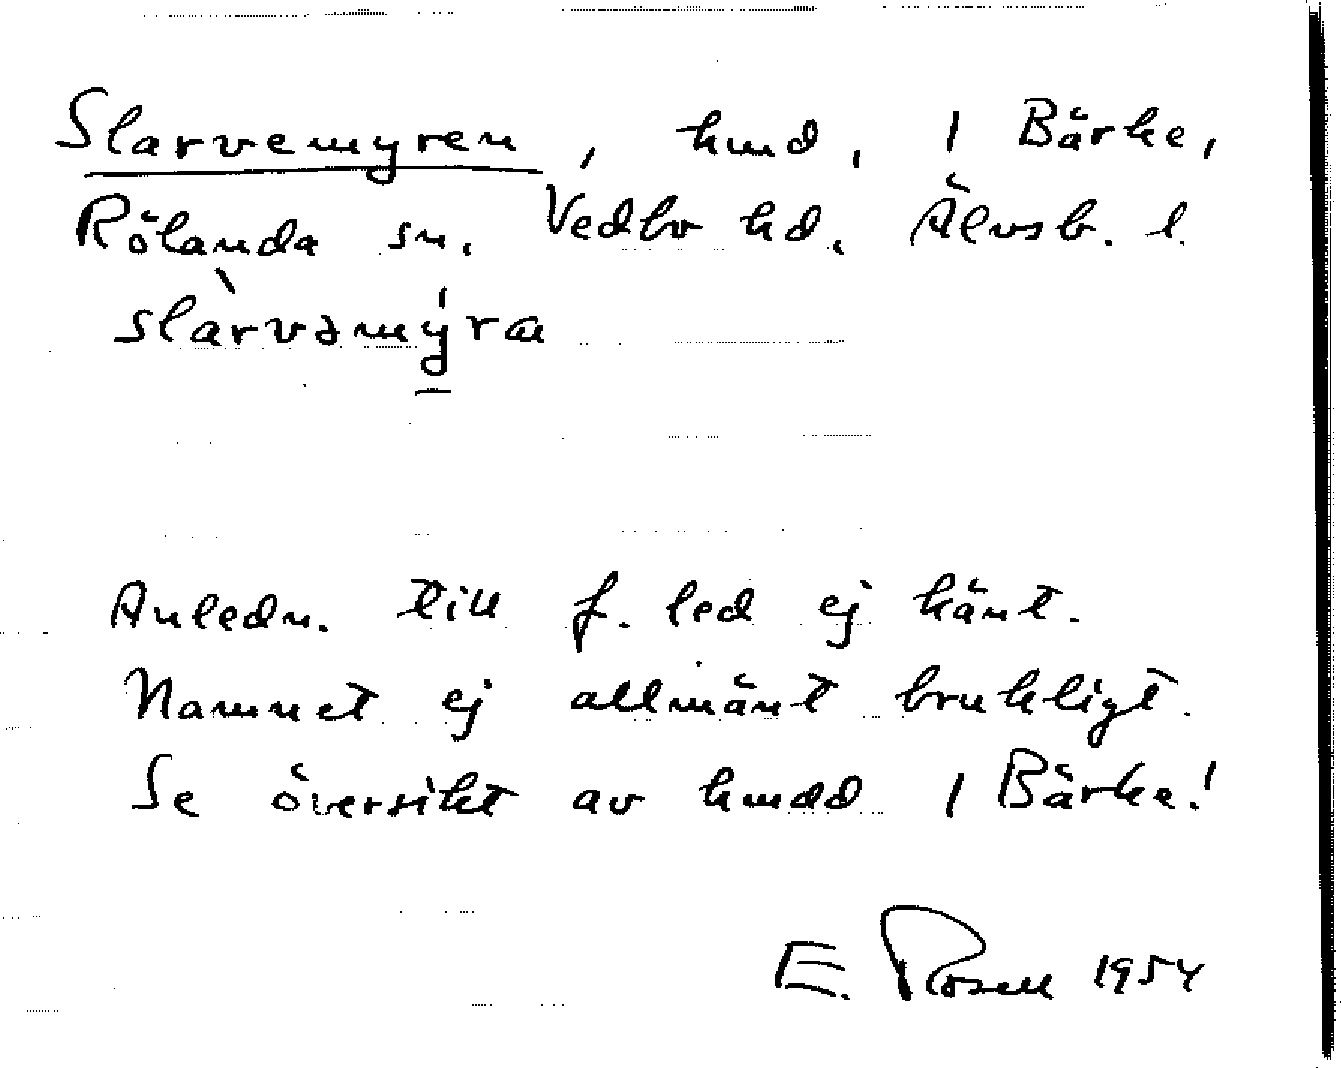 Slarvemyren, hmd, 1 Bärke,
Rölanda sn. Vedbo hd. Älvsb. l.
slàrvəmýra
Anledn. till f. led ej känt.
Namnet ej allmänt brukligt.
Se översikt av hmdd 1 Bärke!
E. Rosell 1954